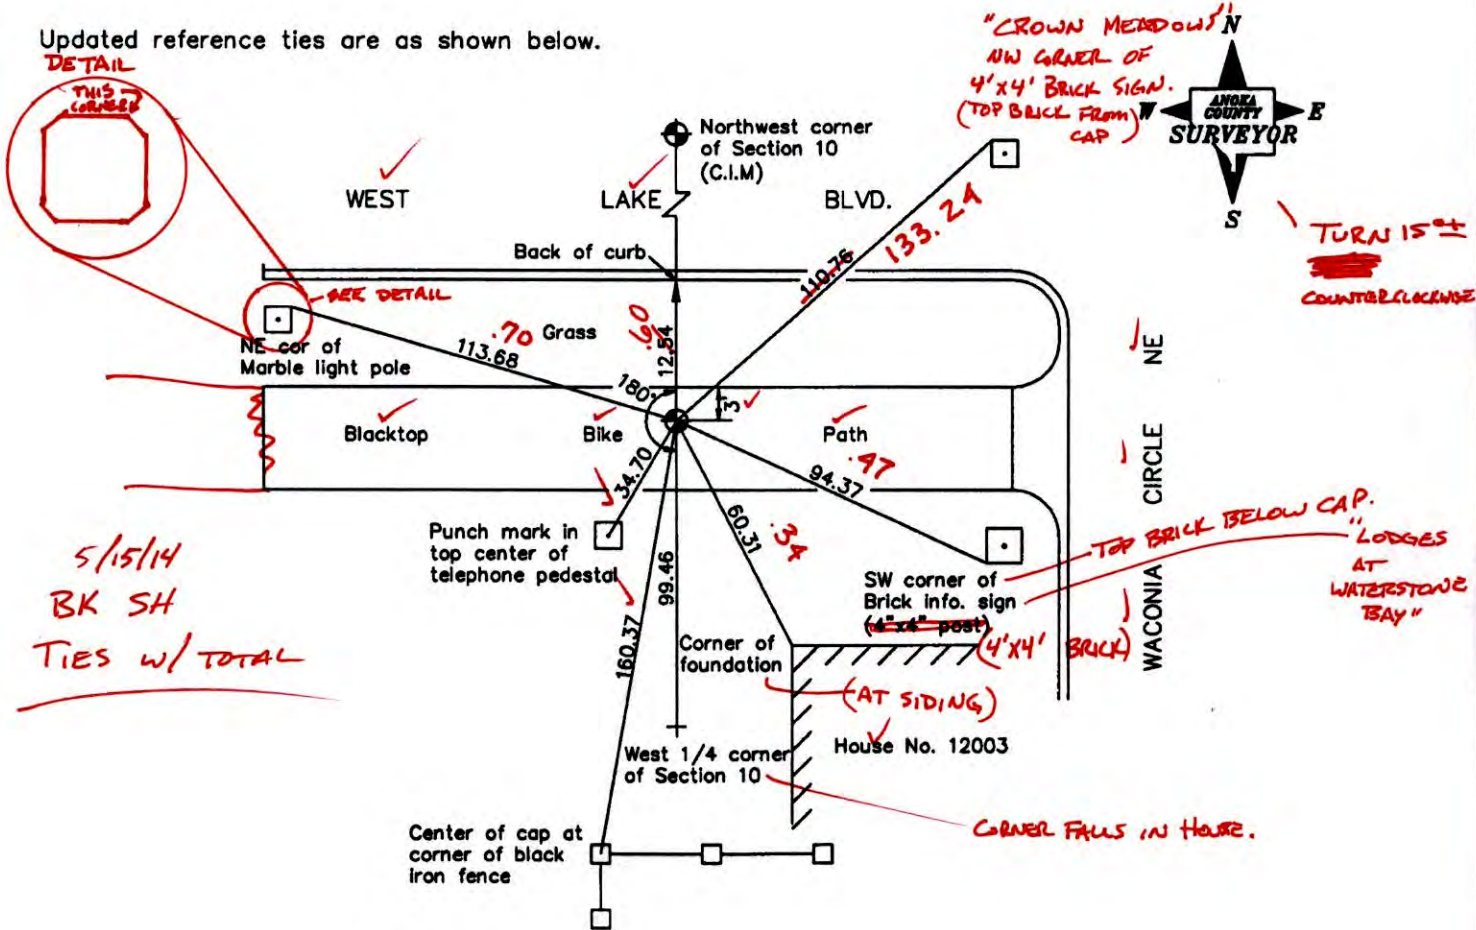 Updated reference ties are as shown below.
DETAIL
THIS
CORNER
"CROWN MEADOWS"
NW CORNER OF
4'x4' BRICK SIGN.
(TOP BRICK FROM)
CAP
N
W
ANOKA
COUNTY
SURVEYOR
E
S
TURN 15°±
COUNTERCLOCKWISE
Northwest corner
of Section 10
(C.I.M)
WEST LAKE BLVD.
Back of curb
110.76
133.24
SEE DETAIL
NE cor of
Marble light pole
113.68
.70
Grass
.60
12.54
180°
3'
Blacktop
Bike
Path
34.70
94.37
.47
60.31
.34
Punch mark in
top center of
telephone pedestal
99.46
160.37
SW corner of
Brick info. sign
(4"x4" post)
(4'x4' BRICK)
TOP BRICK BELOW CAP.
"LODGES
AT
WATERSTONE
BAY"
WACONIA CIRCLE NE
5/15/14
BK SH
TIES W/ TOTAL
Corner of
foundation
(AT SIDING)
House No. 12003
West 1/4 corner
of Section 10
CORNER FALLS IN HOUSE.
Center of cap at
corner of black
iron fence